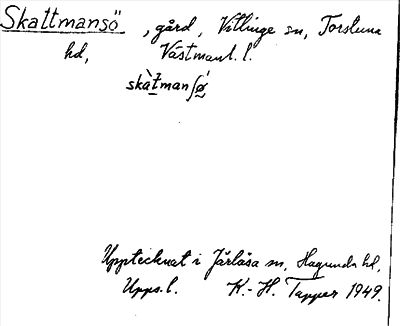 Skattmansö, gård, Vittinge sn, Torstuna
hd, Västmanl. l.
skàt̲manʃǿ̲
Upptecknat i Järlåsa sn, Hagunda hd,
Upps. l. K.-H. Tapper 1949.